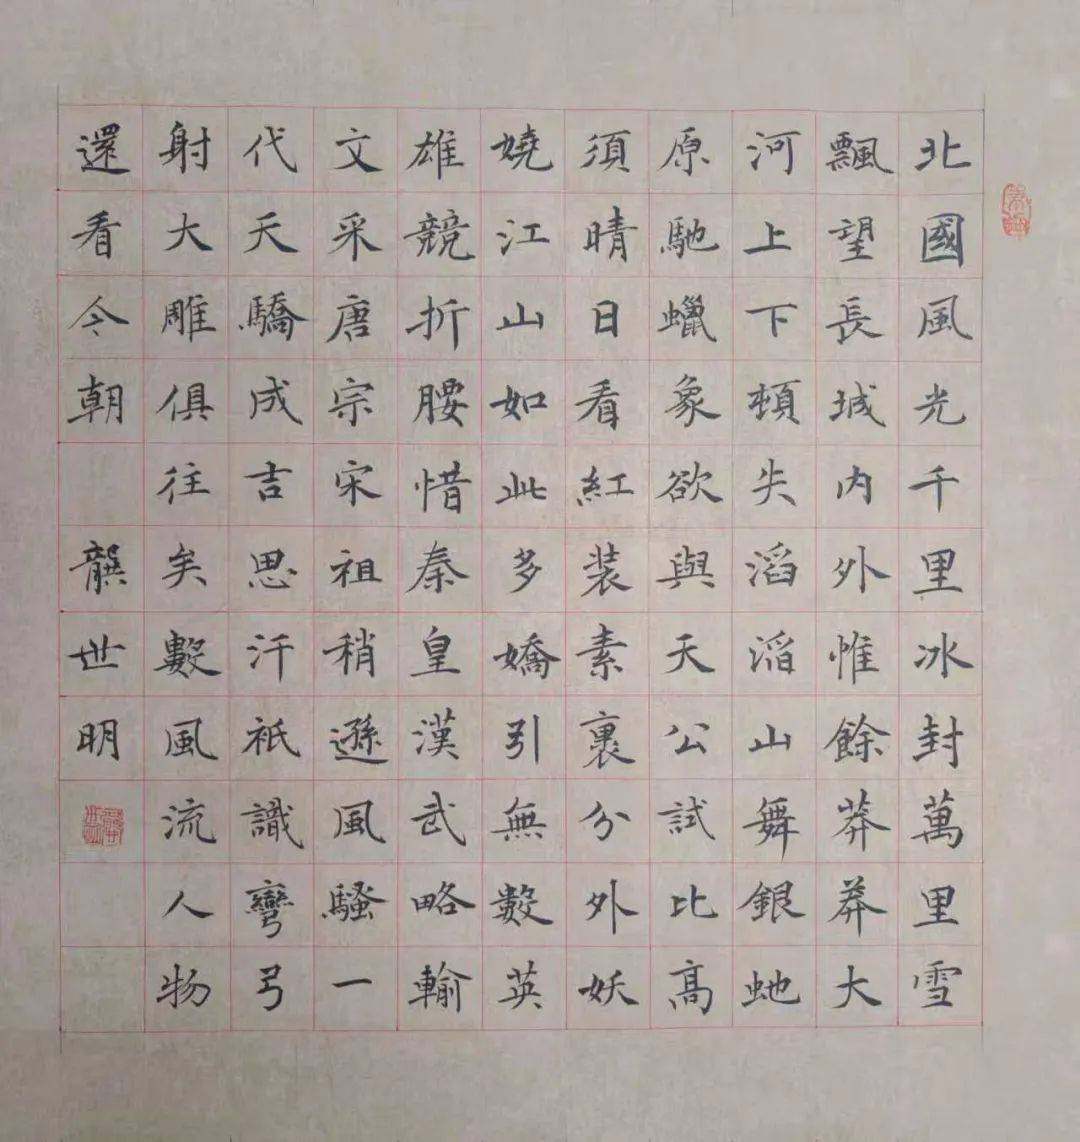 北國風光千里冰封萬里雪
飄望長城内外惟餘莽莽大
河上下頓失滔滔山舞銀虵
原馳蠟象欲與天公試比高
須晴日看紅装素裹分外妖
嬈江山如此多嬌引無數英
雄競折腰惜秦皇漢武略輸
文采唐宗宋祖稍遜風騷一
代天驕成吉思汗祇識彎弓
射大雕俱往矣數風流人物
還看今朝 龔世明